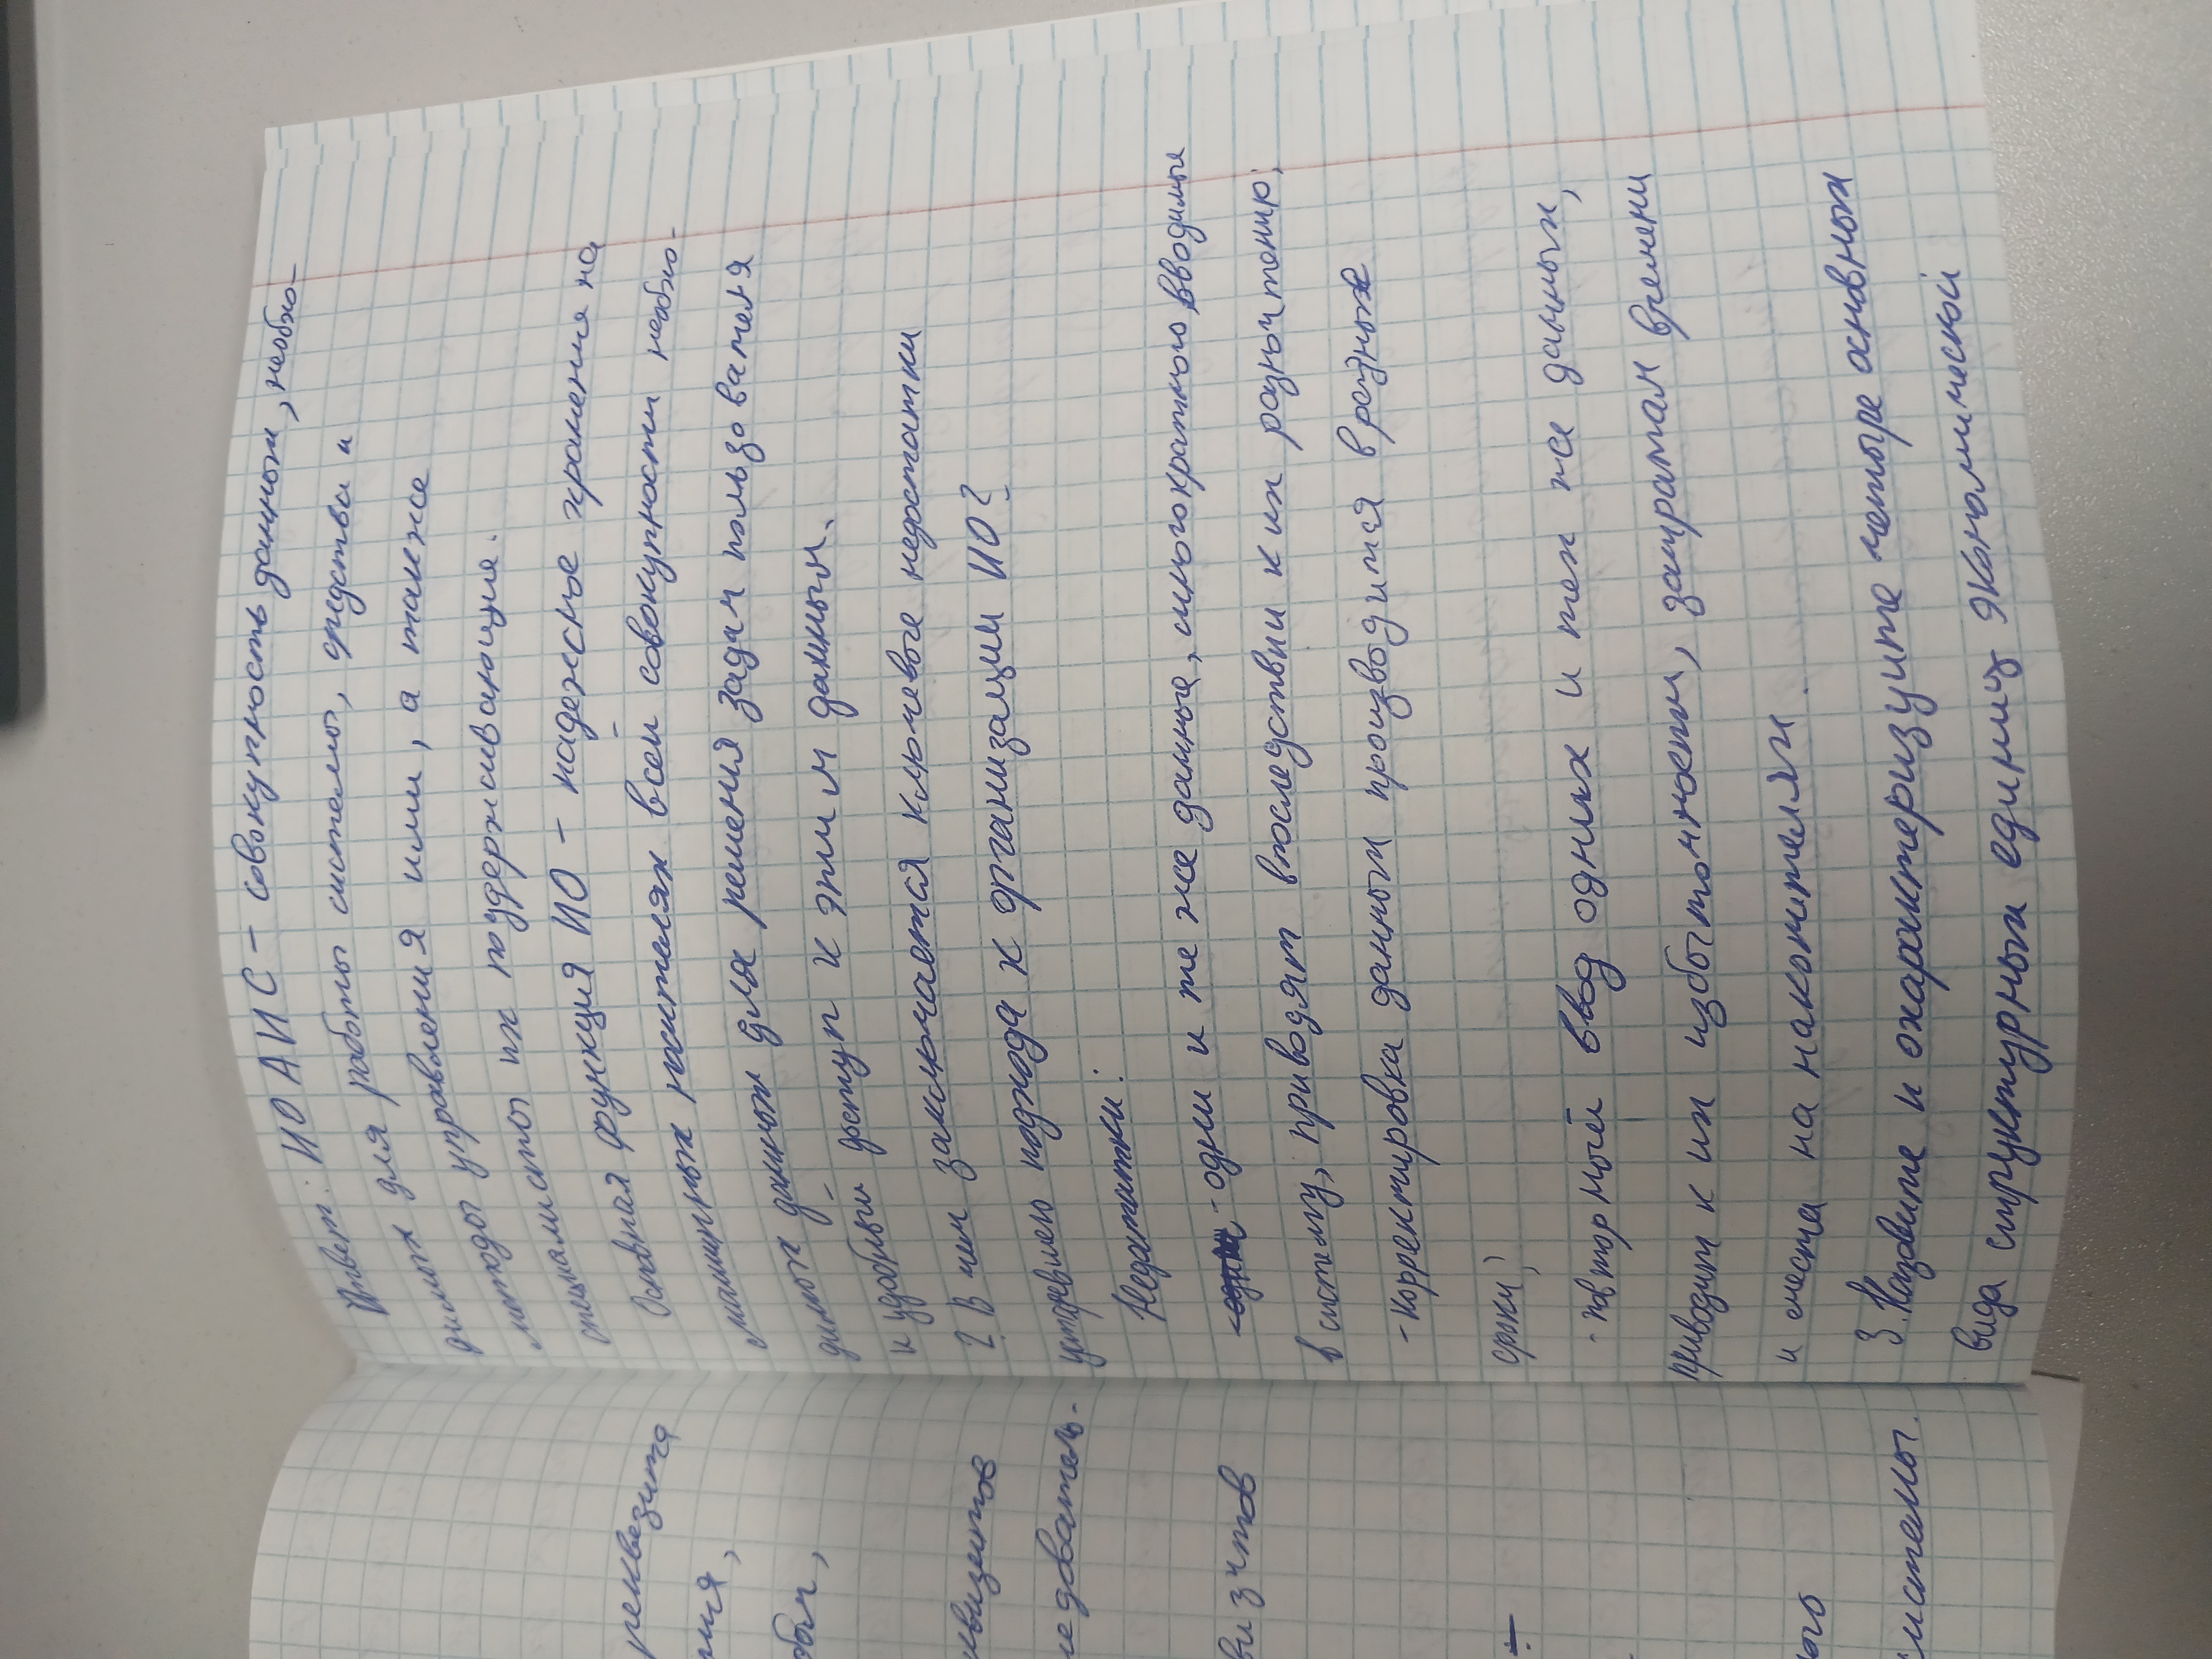 Ответ: ИО АИС – совокупность данных, необхо-
димых для работы системы, средства и
методы управления ими, а также
специалисты их поддерживающие.
Основная функция ИО – надежное хранение на
машинных носителях всей совокупности необхо-
димых данных для решения задач пользователя
и удобный доступ к этим данным.
2. В чем заключается ключевого недостатки
устаревшего подхода к организации ИО?
Недостатки:
- одни и те же данные, многократно вводимые
в систему, приводят впоследствии к их разночтению;
- корректировка данных производится в разные
сроки;
- повторный ввод одних и тех же данных,
приводит к их избыточности, затратам времени
и места на накопителях.
3. Назовите и охарактеризуйте четыре основных
вида структурных единиц экономической
реквизита
ния,
довател-